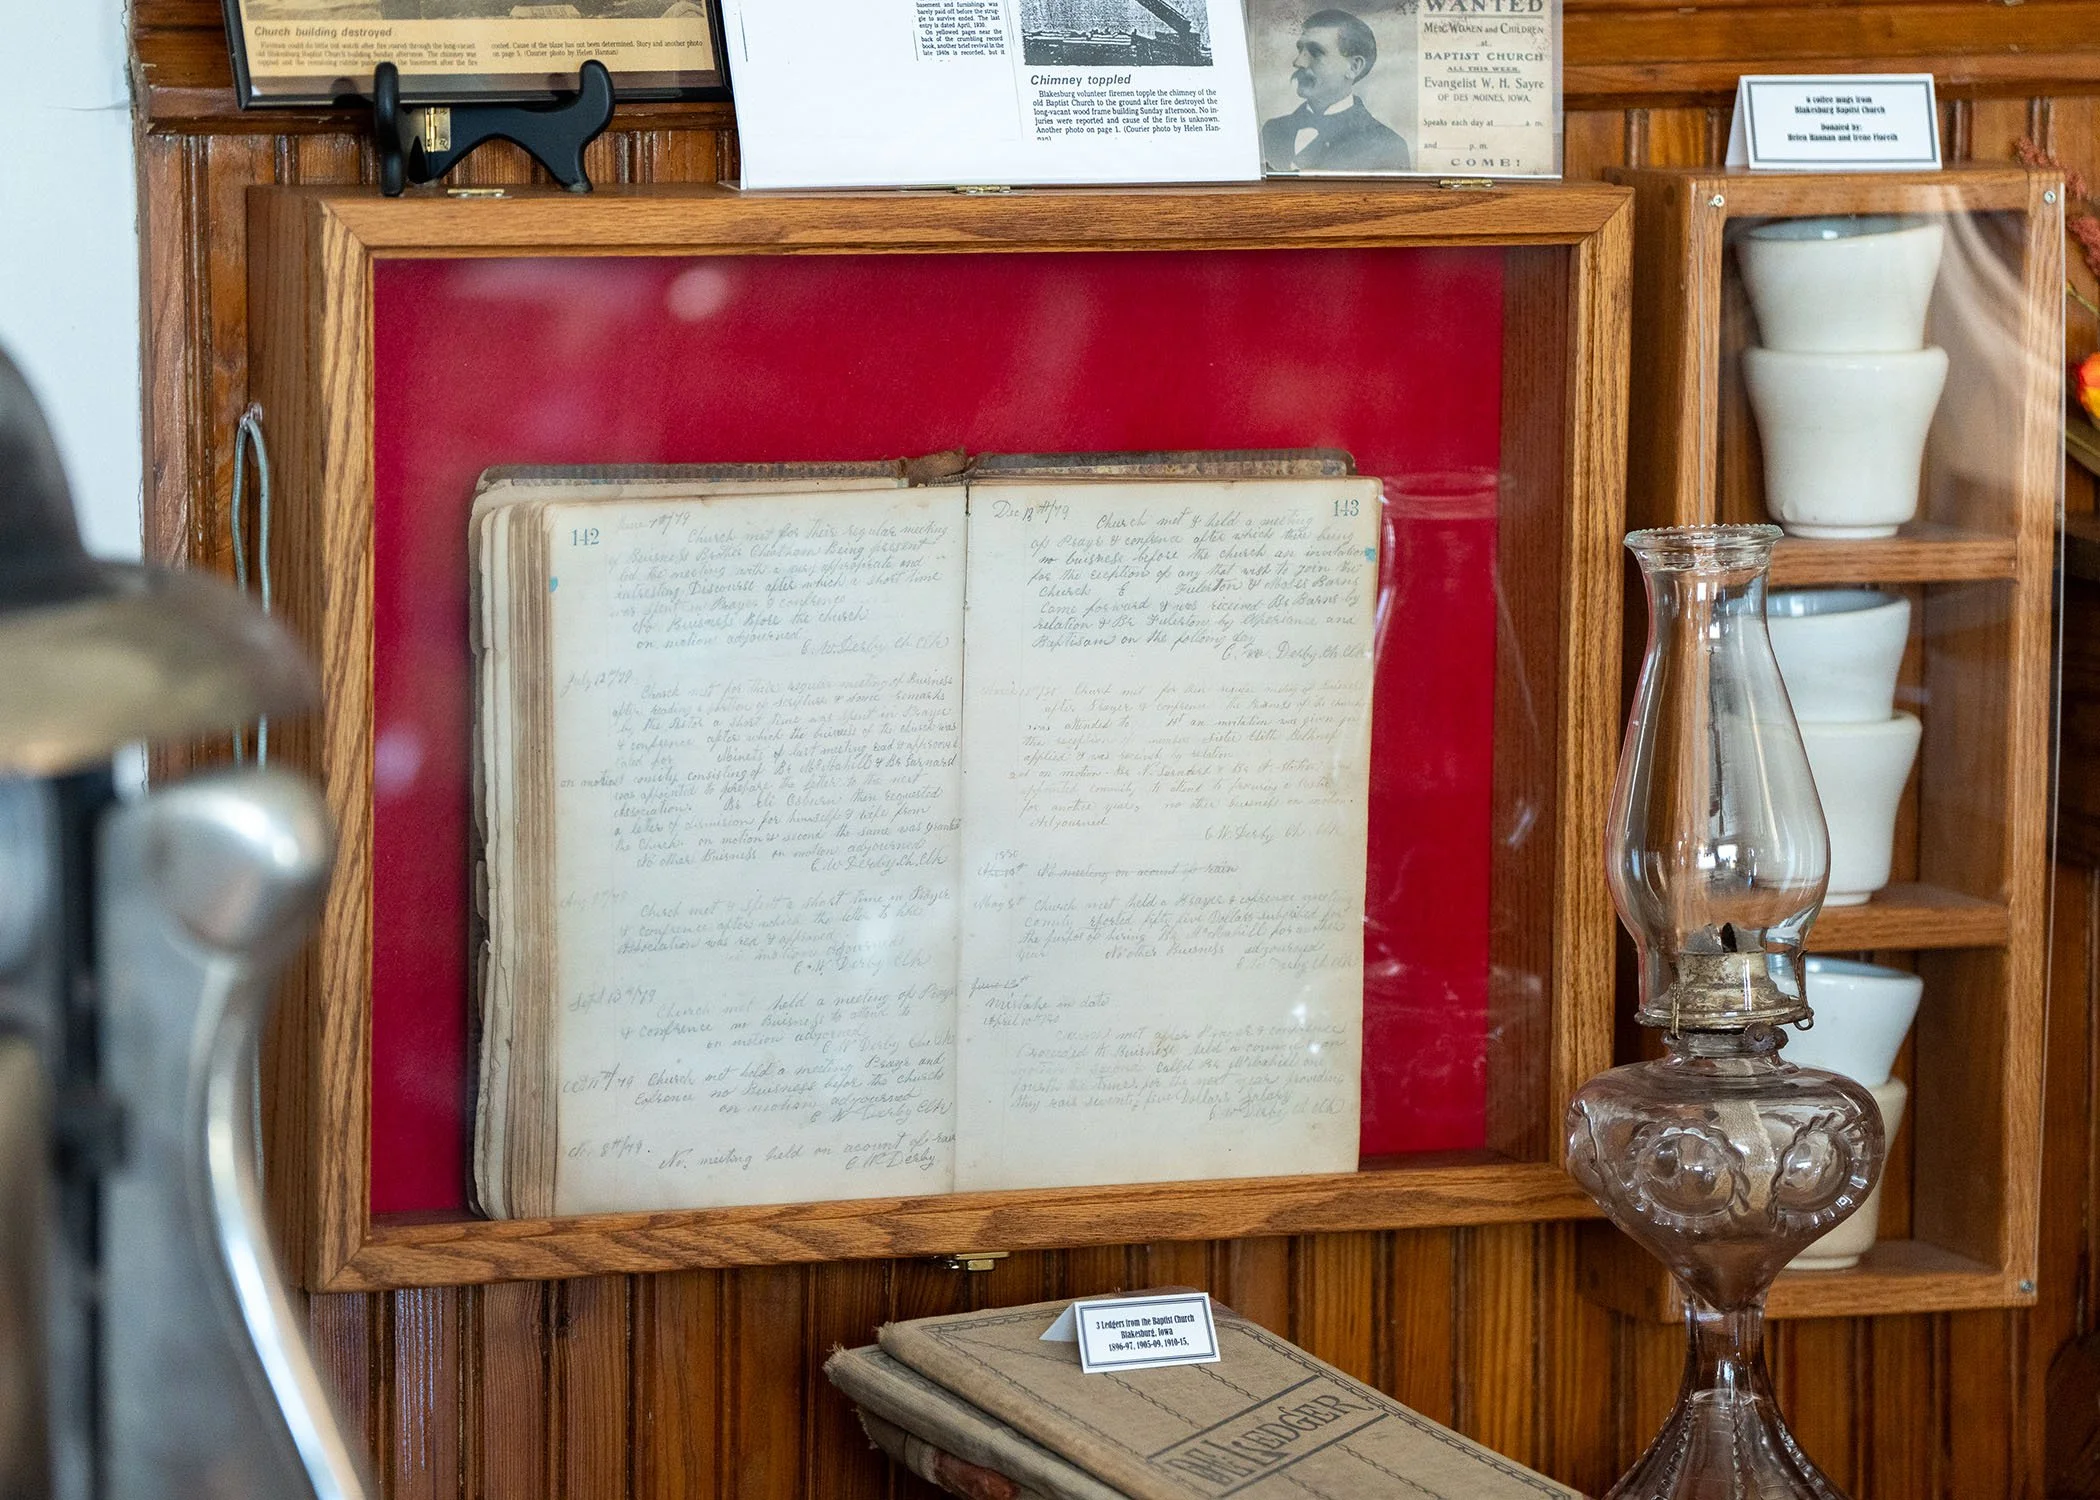 Church building destroyed
Firemen could do little but watch after fire roared through the long-vacant
cooled. Cause of the blaze has not been determined. Story and another photo
old Blakesburg Baptist Church building Sunday afternoon. The chimney was
on page 5. (Courier photo by Helen Hannan)
toppled and the remaining rubble pushed into the basement after the fire
basement and furnishings was
barely paid off before the strug-
gle to survive ended. The last
entry is dated April, 1930.
On yellowed pages near the
back of the crumbling record
book, another brief revival in the
late 1940s is recorded, but it
Chimney toppled
Blakesburg volunteer firemen topple the chimney of the
old Baptist Church to the ground after fire destroyed the
long-vacant wood frame building Sunday afternoon. No in-
juries were reported and cause of the fire is unknown.
Another photo on page 1. (Courier photo by Helen Han-
nan)
WANTED
Men, Women and Children
at
BAPTIST CHURCH
ALL THIS WEEK.
Evangelist W. H. Sayre
OF DES MOINES, IOWA.
Speaks each day at a. m.
and p. m.
COME!
6 coffee mugs from
Blakesburg Baptist Church
Donated by:
Helen Hannan and Irene
142
June 7th/79
Church met for their regular meeting
of Buisness Brother Being present
led the meeting with a very appropriate and
intresting Discourse after which a short time
was spent in Prayer & confrence
No Buisness before the church
on motion adjourned
C. W. Derby Ch Clk
July 12th/79
Church met for their regular meeting of Buisness
after reading a portion of scripture & some remarks
by the Pastor a short time was spent in Prayer
& confrence after which the buisness of the church was
called for Minets of last meeting read & approved
on motion comity consisting of Br McMahill & Br Barnard
was appointed to prepare the letter to the next
association. Br Eli Osburn then requested
a letter of dismission for himself & wife from
the Church. on motion & second the same was granted
No other Buisness on motion adjourned
C. W Derby Ch. Clk
Aug 9th/79
Church met & spent a short time in Prayer
& confrence after which the letter to the
association was red & approved
on motion adjourned
C. W. Derby Clk
Sept 13th/79
Church met held a meeting of Prayr
& confrence no Buisness to attend to
on motion adjorned
C W Derby Clk
Oct 11th/79 Church met held a meeting Prayr and
Confrence no Buisness befor the church
on motion adjourned
C W Derby Clk
Nov 8th/79. No. meeting held on acount of rain
C. W. Derby
143
Dec 13th/79 Church met & held a meeting
of Prayr & confrence after which there being
no buisness before the church an invitation
for the reception of any that wish to join the
Church E Fulerton & Moses Barns
Came forward & was received Br Barns by
relation & Br Fulerton by Experiance and
Baptisam on the folloing day
C. W. Derby. Ch. Clk
Church met for their reguar meeting of Buisness
after Prayer & confrence the buisness of the church
was attended to 1st an invitation was given for
the reception of member Sister
applied & was received by relation
2d on motion Br N. Barnard & Br
appointed comity to attend to procuring a Pastor
for another year, no other buisness on motion.
Adjourned
C W Derby Ch. Clk
1880
No meeting on acount of rain
May 8th Church met held a Prayer & confrence meeting
Comity reported fifty five Dollars subscribed for
the purpos of hireing Br McMahill for another
year No other Buisness adjourned
C W Derby Ch Clk
June 12th
mistake in date
April 10th/80
Church met after Prayer & confrence
proceeded to Buisness held a council upon
motion & second called Br McMahill one
fourth the time for the next year providing
they rais seventy five Dollars Salary
C W Derby Ch Clk
3 Ledgers from the Baptist Church
Blakesburg, Iowa
1896-97, 1905-09, 1910-15.
LEDGER